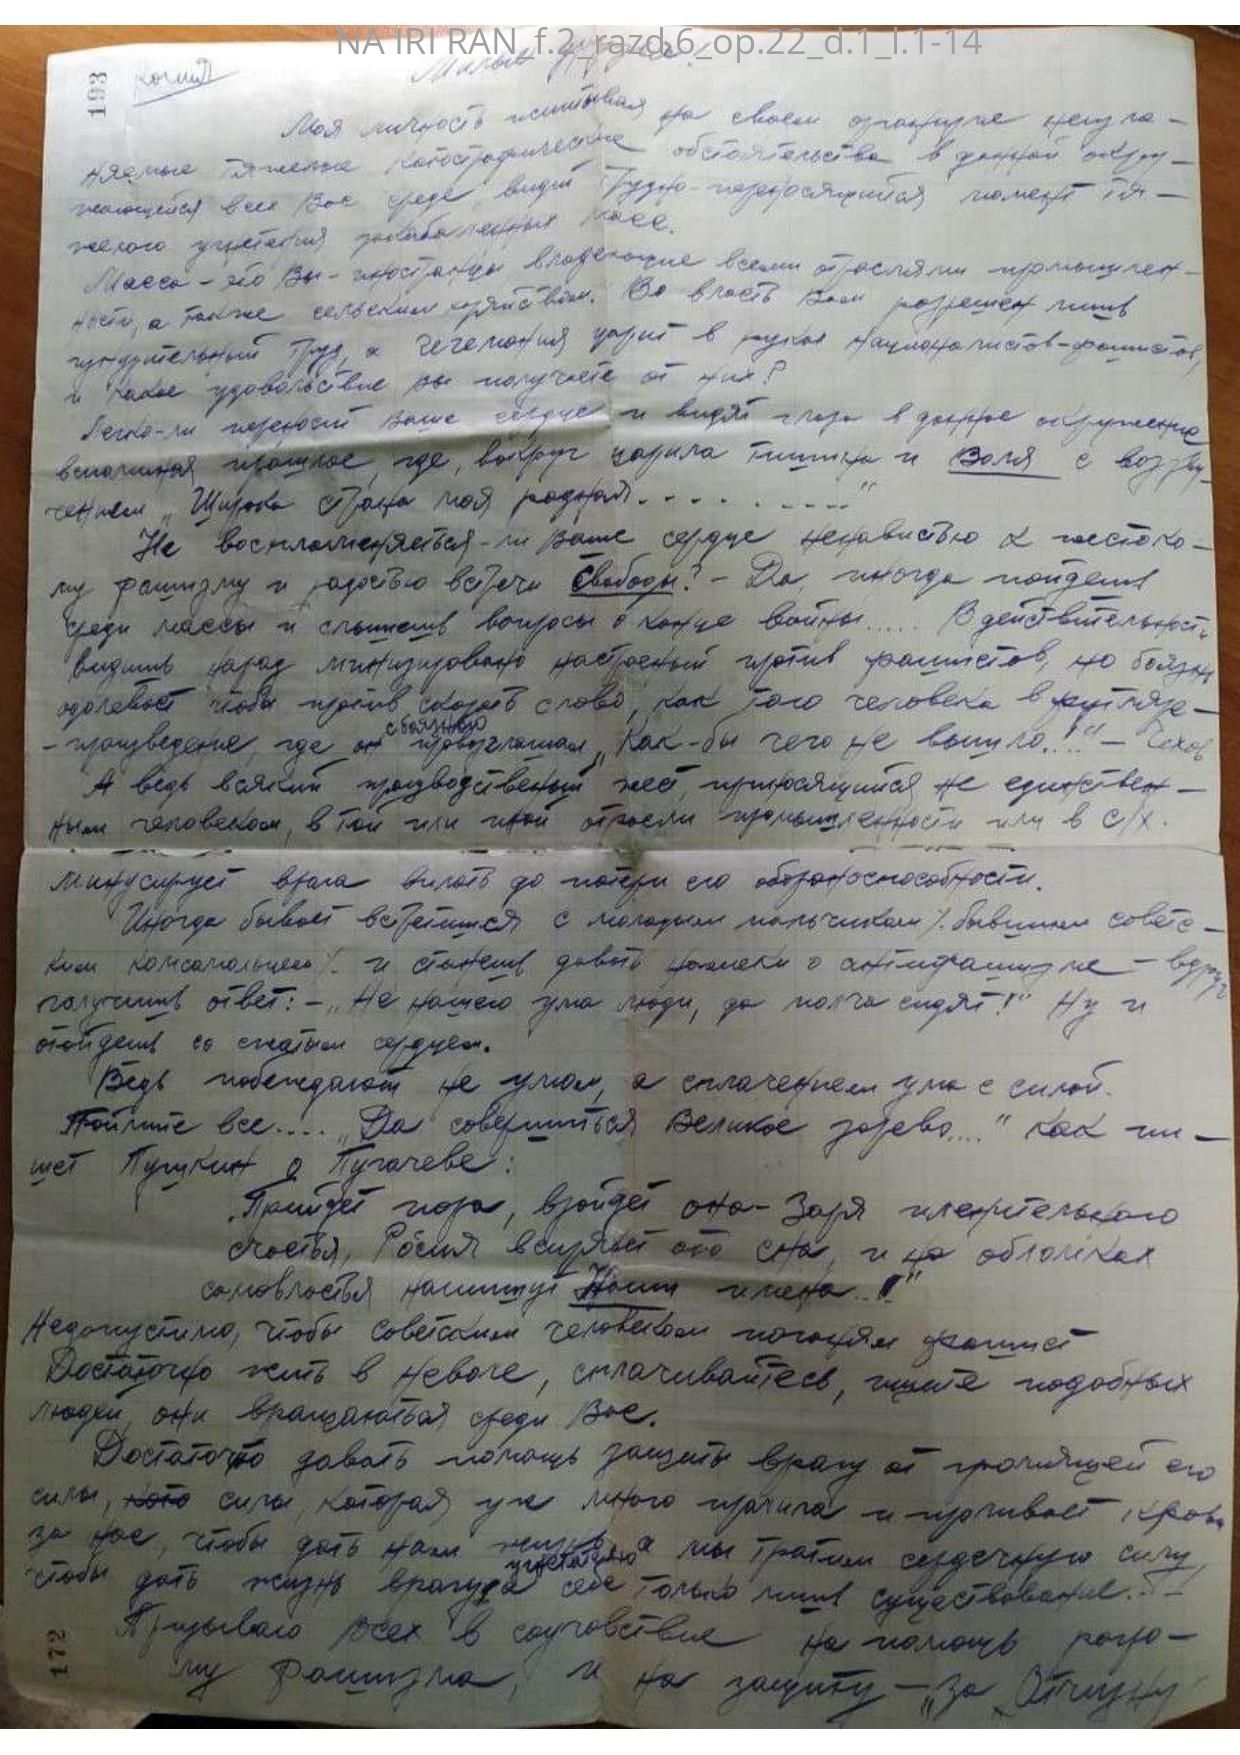 NA IRI RAN_f.2_razd.6_op.22_d.1_l.1-14
193
копия
Милые друзья!
Моя личность испытывая на своем организме неизга-
няемые тяжелые катострафические обстоятельства в данной окру-
жающейся всех Вас среде видит трудно-переносящийся момент тя-
желого угнетения закабаленных масс.
Масса - это Вы - иностранцы владеющие всеми отраслями промышлен-
ности, а также сельским хозяйством. Во власть Вам разрешен лишь
принудительный труд, а гегемония царит в руках националистов-фашистов,
и какое удовольствие вы получаете от них?
Легко-ли переносит Ваше сердце и видят глаза в данное окружение
вспоминая прошлое, где, вокруг царила тишина и Воля с воззву-
чением „Широка страна моя родная.........."
Не воспламеняеться-ли Ваше сердце ненавистью к жестоко-
му фашизму и радостью встречи Свободы? - Да, иногда пойдешь
среди массы и слышешь вопросы о конце войны..... В действительности
видишь народ настроеный против фашистов, но боязнь
одолевает чтобы против сказать слово, как того человека в футляре -
- произведение, где он с боязнью провозглашал „Как-бы чего не вышло!.." - Чехов
А ведь всякий производственый жест, приносящийся не единствен-
ным человеком, в той или иной отросли промышленности или в с/х.
минусирует врага вплоть до потери его обороноспособности.
Иногда бывает встретишся с молодым мальчиком /. бывшим советс-
ким комсомольцем /. и станешь давать намеки о антифашизме - вдруг
получишь ответ: - „Не нашего ума люди, да молча сидят!" Ну и
отойдешь со сжатым сердцем.
Ведь побеждают не умом, а сплачением ума с силой.
Поймите все.... „Да совершиться Великое зарево...." как пи-
шет Пушкин о Пугачеве:
„Прийдет пора, взойдет она - Заря пленительного
счастья, Росия вспрянет ото сна, и на обломках
самовластья напишут Наши имена..!"
Недопустимо, чтобы советским человеком погонял фашист
Достаточно жить в неволе, сплачивайтесь, ищите подобных
людей, они вращаються среди Вас.
Достаточно давать помощь защиты врагу от громящей его
силы, кото силы, которая уже много пролила и проливает кровь
за нас, чтобы дать нам жизнь, а мы тратим сердечную силу,
чтобы дать жизнь врагу, а себе только лишь существование..!
Призываю Всех в соучовствие на помощь разгро-
му фашизма, и на защиту - „За Отчизну
172